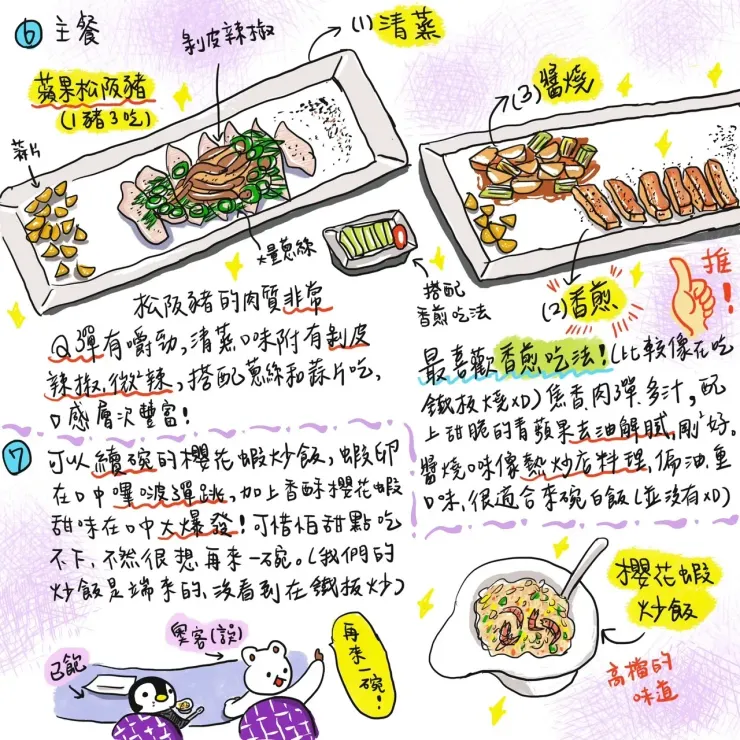 ⑥ 主餐
剝皮辣椒
(1) 清蒸
蘋果松阪豬
(1豬3吃)
蒜片
大量蔥絲
(3) 醬燒
搭配
香煎吃法
(2) 香煎
推!
松阪豬的肉質非常
Q彈有嚼勁,清蒸口味附有剝皮
辣椒,微辣,搭配蔥絲和蒜片吃,
口感層次豐富!
最喜歡香煎吃法!(比較像在吃
鐵板燒XD)焦香、肉彈、多汁,配
上甜脆的青蘋果去油解膩,剛好。
醬燒口味像熱炒店料理,偏油、重
口味,很適合來碗白飯(並沒有XD)
⑦ 可以續碗的櫻花蝦炒飯,蝦卵
在口中嗶啵彈跳,加上香酥櫻花蝦
甜味在口中大爆發!可惜怕甜點吃
不下,不然很想再來一碗。(我們的
炒飯是端來的,沒看到在鐵板炒)
奧客(誤)
已飽
再來一碗!
櫻花蝦
炒飯
高檔的
味道